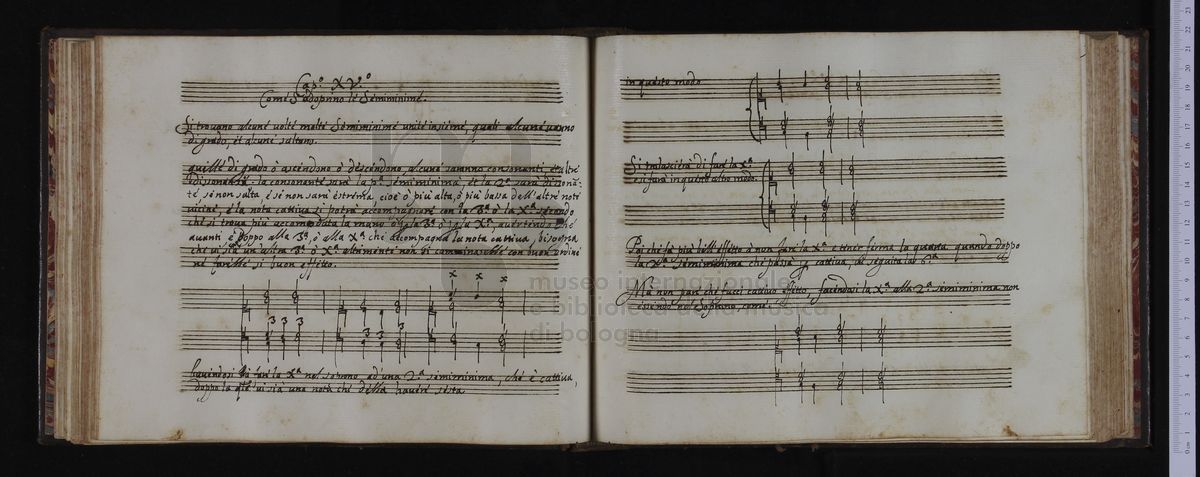 Cap.º XV.º
Come s'adoprino le Semiminime.
Si trovano alcune volte molte Semiminime unite insieme, quali alcune vanno
di grado, et alcune saltano.
quelle di grado ò ascendono ò descendono, alcune saranno consonanti, et altre
dissonanti. la consonante sarà la p.ª semiminima, et la 2.ª sarà dissonan-
te se non salta, e se non sarà estrema, cioè ò più alta, ò più bassa dell'altre note
vicine, e la nota cattiva si potrà accompagnare con la 3.ª ò la X.ª secondo
che si trova più accomodata la mano alla 3.ª ò alla X.ª, avertendo che
avanti è doppo alla 3.ª, ò alla X.ª che accompagna la nota cattiva, bisogna
che vi sia un'altra 3.ª ò X.ª altrimente non si caminarebbe con buon ordine
ne farebbe si buon effetto.
x x x
3 3 3 3 3
havendosi da far la X.ª nel soprano ad una 2.ª semiminima, che è cattiva,
doppo la q.le vi sia una nota che debba havere sesta
in questo modo
Si tralascierà di far la X.ª
e si farà in quest'altro modo.
Perche fa più bell'effetto è non far la X.ª quando doppo
la X.ª semiminima cattiva, ne seguita la 6.ª
Ma non farà già così cattivo effetto, facendosi la X.ª alla 2.ª semiminima non
essendo nel Soprano come.
museo internazionale
e biblioteca della musica
di bologna
0 cm 1 2 3 4 5 6 7 8 9 10 11 12 13 14 15 16 17 18 19 20 21 22 23